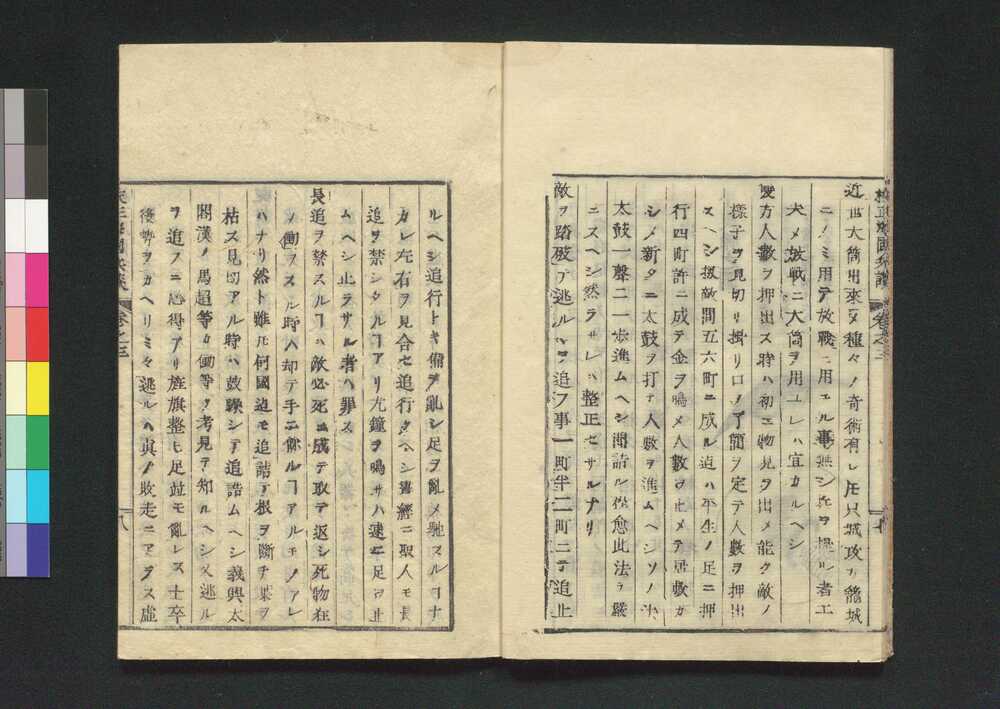 近世大筒出來乄種々ノ奇術有レ𪜈只城攻カ籠城
ニノミ用テ放戰ニ用エル事無シ兵ヲ操ル者工
夫メ放戰ニ大筒ヲ用ユレハ宜カルヘシ
雙方人數ヲ押出ス時ハ初ニ物見ヲ出メ能ク敵ノ
樣子ヲ見切リ掛リ口ノ了簡ヲ定テ人數ヲ押出
スヘシ扨敵間五六町ニ成ル迠ハ平生ノ足ニ押
行四町許ニ成テ金ヲ鳴メ人數ヲ止メテ居敷カ
シメ新タニ太鼓ヲ打テ人數ヲ進ムヘシソノ
太鼓一聲ニ一歩進ムヘシ間詰ル程愈此法ヲ嚴
ニスヘシ然ラサレハ整正セサルナリ
敵ヲ踏破テ逃ルヽヲ追フ事一町半二町ニテ追止
ルヘシ追行トキ備ヲ亂シ足ヲ亂メ馳スルヿナ
カレ左右ヲ見合セ追行クヘシ書經ニ聖人モ長
追ヲ禁シタルヿアリ尤鐘ヲ鳴サハ速ニ足ヲ止
ムヘシ止ラサル者ハ罪ス
長追ヲ禁スルヿハ敵必死ニ成テ取テ返シ死物狂
ノ働ヲスル時ハ却テ手ニ餘ルヿアルモノアレ
ハナリ然ト雖𪜈何國迠モ追詰テ根ヲ斷チ葉ヲ
枯ス見切アル時ハ鼓躁シテ追詰ムヘシ義興太
閤漢ノ馬超等カ働等ヲ考見テ知ルヘシ又逃ル
ヲ追フニ心得アリ旌旗整ヒ足並モ亂レス士卒
後勢ヲカヘリミ々逃ルハ眞ノ敗走ニアラス虛